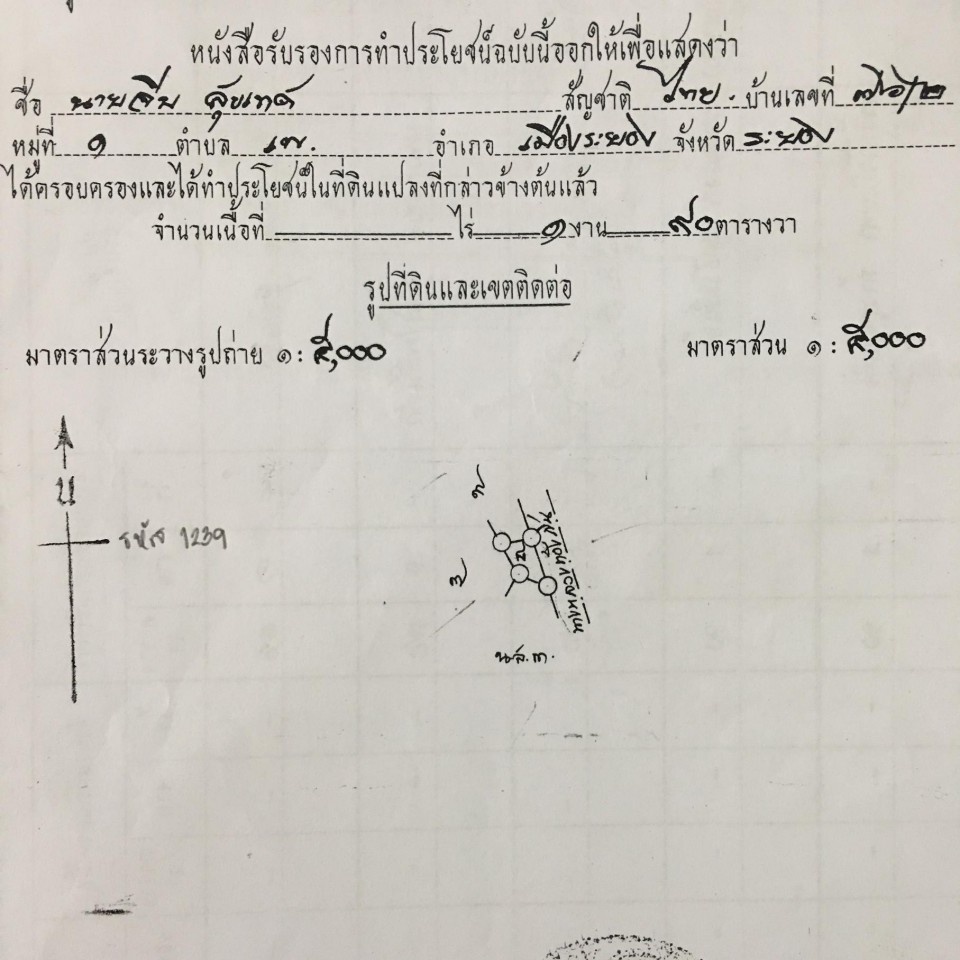 หนังสือรับรองการทำประโยชน์ฉบับนี้ออกให้เพื่อแสดงว่า
ชื่อ นาย สุขเกษ สัญชาติ ไทย. บ้านเลขที่ ๗๖/๒
หมู่ที่ ๑ ตำบล เพ. อำเภอ เมืองระยอง จังหวัด ระยอง
ได้ครอบครองและได้ทำประโยชน์ในที่ดินแปลงที่กล่าวข้างต้นแล้ว
จำนวนเนื้อที่ ไร่ ๑ งาน ๙๐ ตารางวา
รูปที่ดินและเขตติดต่อ
มาตราส่วนระวางรูปถ่าย ๑ : ๕,๐๐๐ มาตราส่วน ๑ : ๕,๐๐๐
น
รหัส 1239
น.ส.๓.